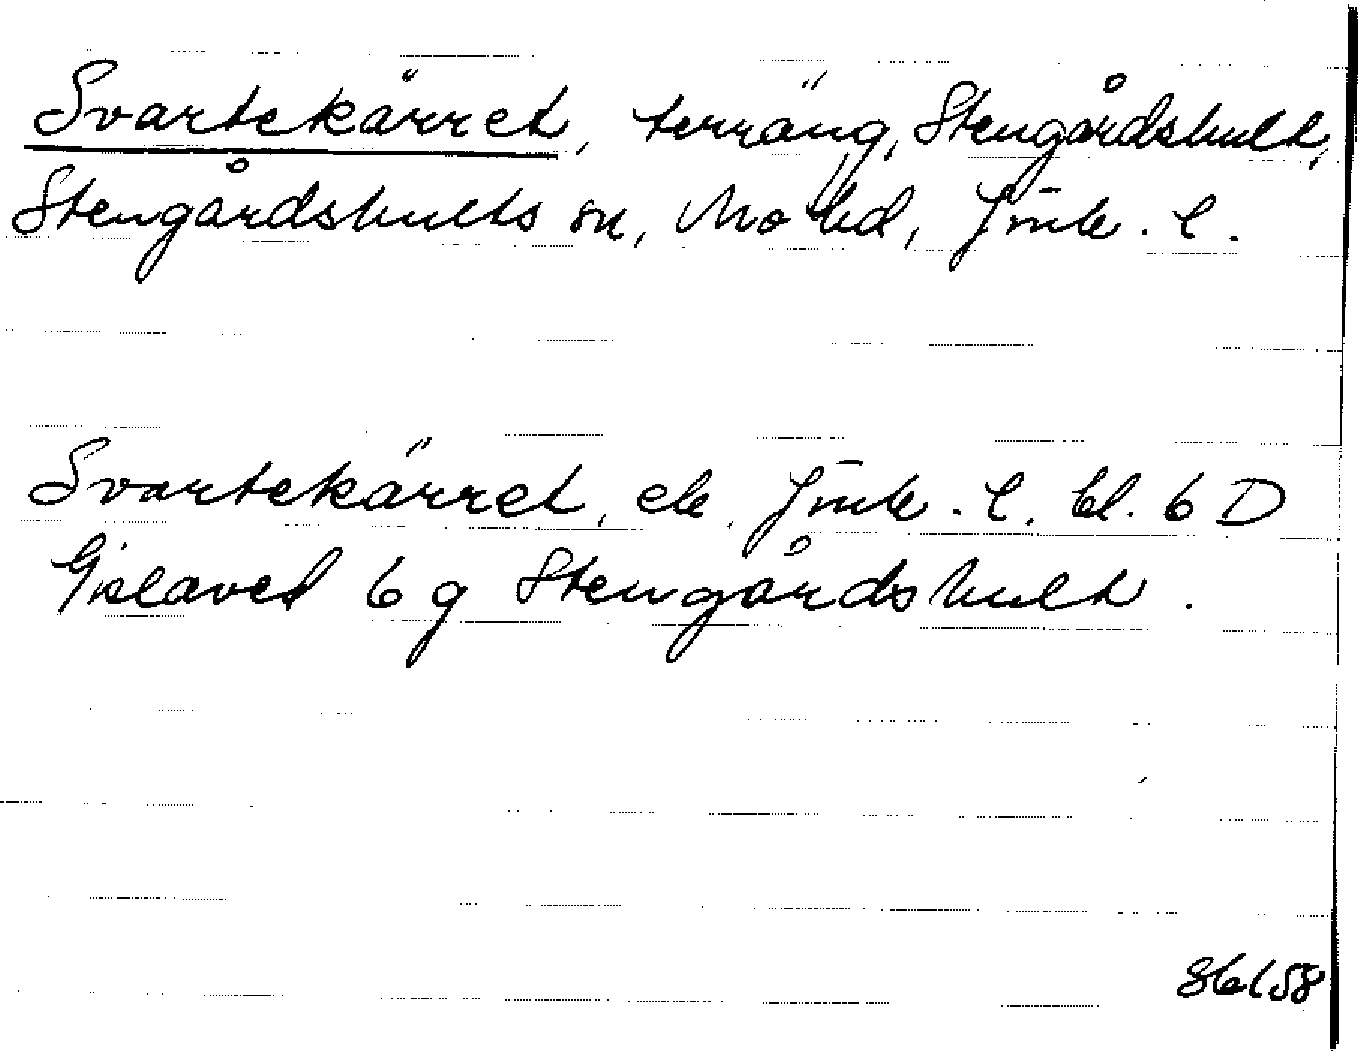 Svartekärret, terräng, Stengårdshult,
Stengårdshults sn, Mo hd, Jönk. l.
Svartekärret, ek. Jönk. l. bl. 6 D
Gislaved 6 g Stengårdshult.
86/58